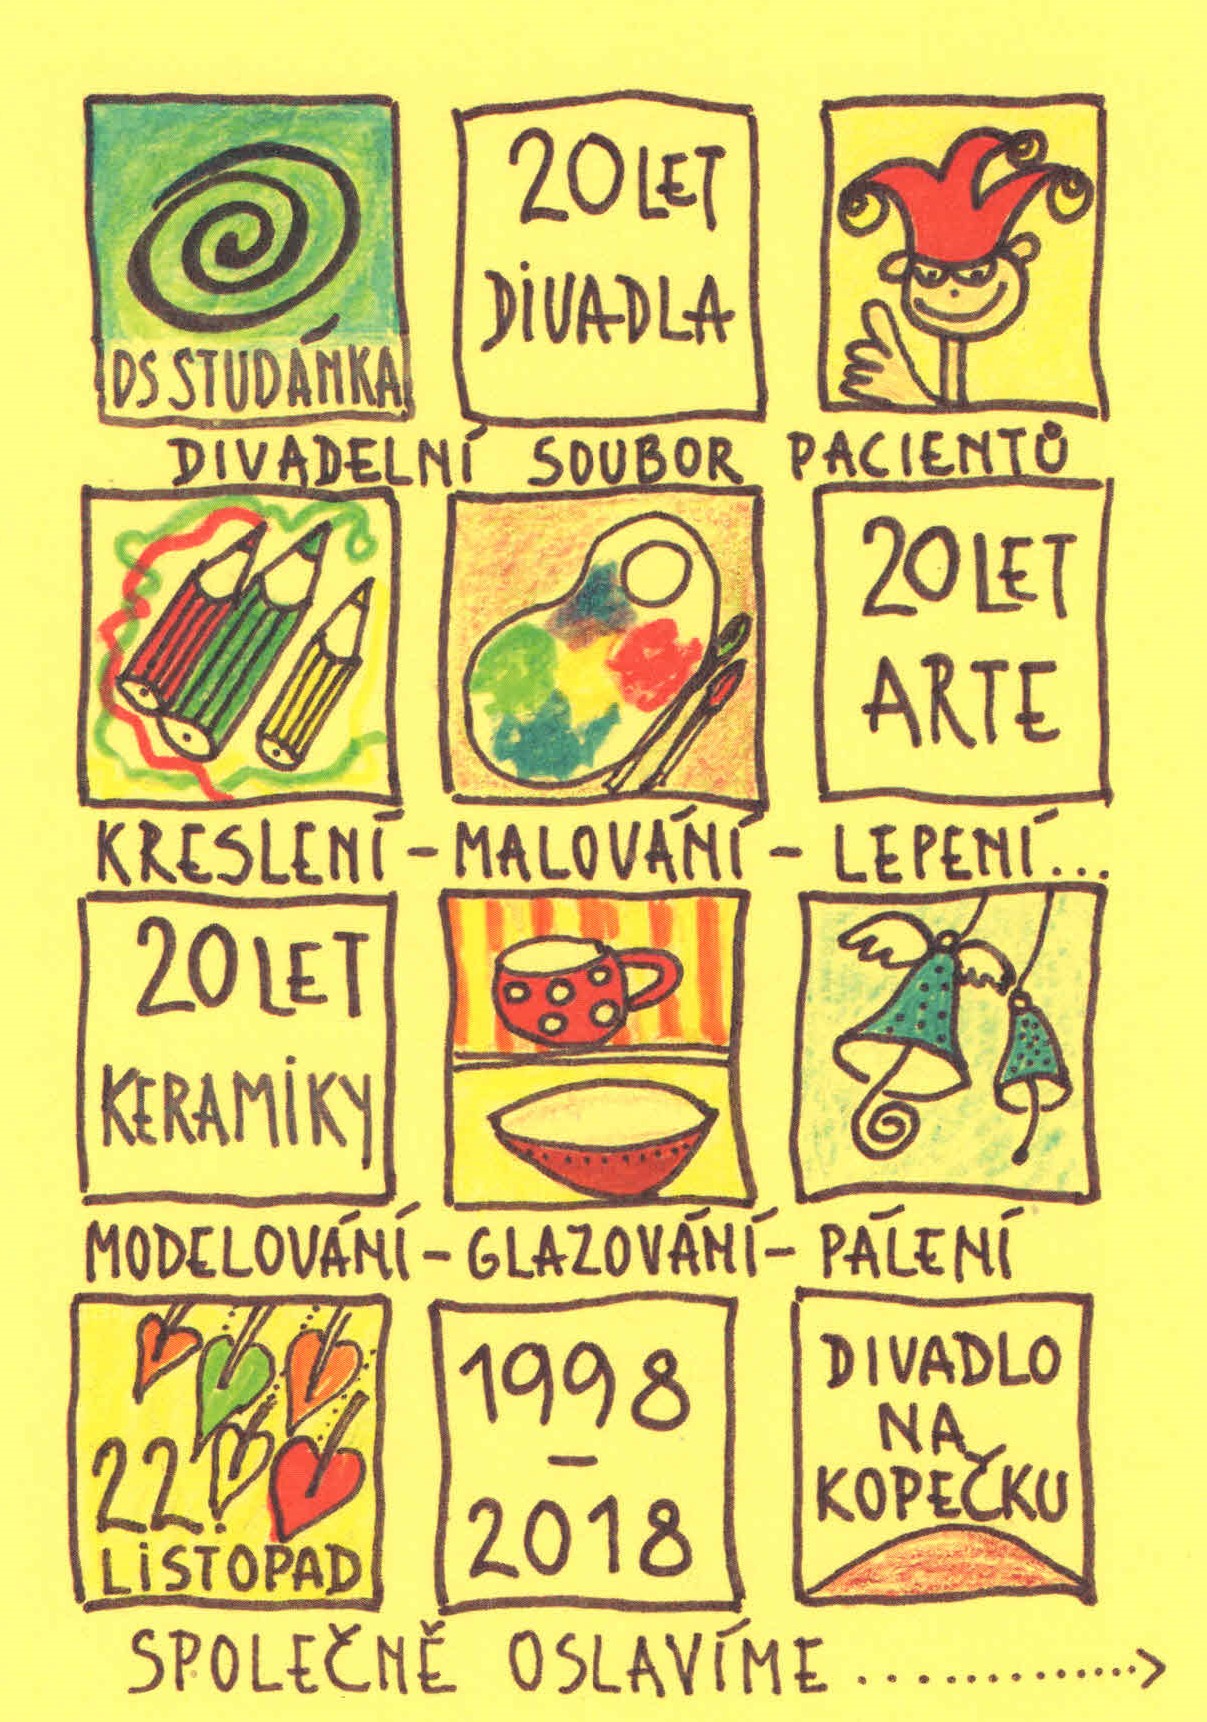 DS STUDÁNKA
20 LET
DiVADLA
DIVADELNÍ SOUBOR PACIENTŮ
20 LET
ARTE
KRESLENÍ - MALOVÁNÍ - LEPENÍ...
20 LET
KERAMiKY
MODELOVÁNÍ - GLAZOVÁNÍ - PÁLENÍ
22.
LiSTOPAD
1998
–
2018
DIVADLO
NA
KOPEČKU
SPOLEČNĚ OSLAVÍME ..............>